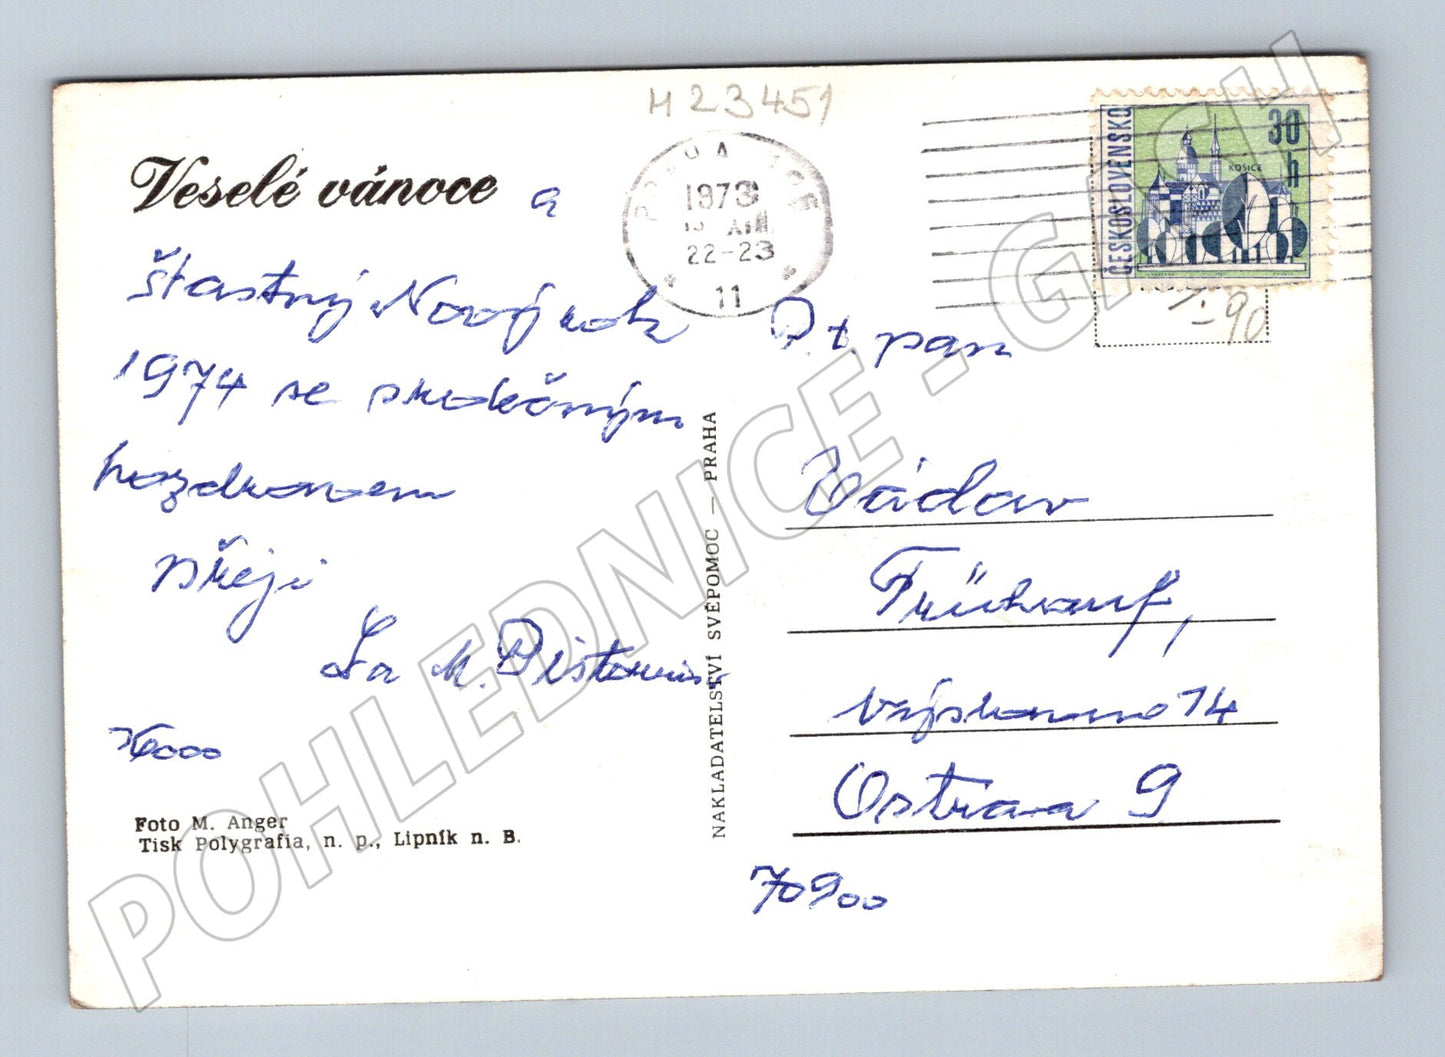 H 23451
Veselé vánoce a
šťastný Nový rok
1974 se srdečným
pozdravem
přeji
M.
16000
Foto M. Anger
Tisk Polygrafia, n. p., Lipník n. B.
NAKLADATELSTVÍ SVĚPOMOC — PRAHA
PRAHA
1973
XII
22-23
11
ČESKOSLOVENSKO
30 h
KOŠICE
I-90
P. t. pan
Václav
Frühauf,
14
Ostrava 9
70900
POHLEDNICE - GASH